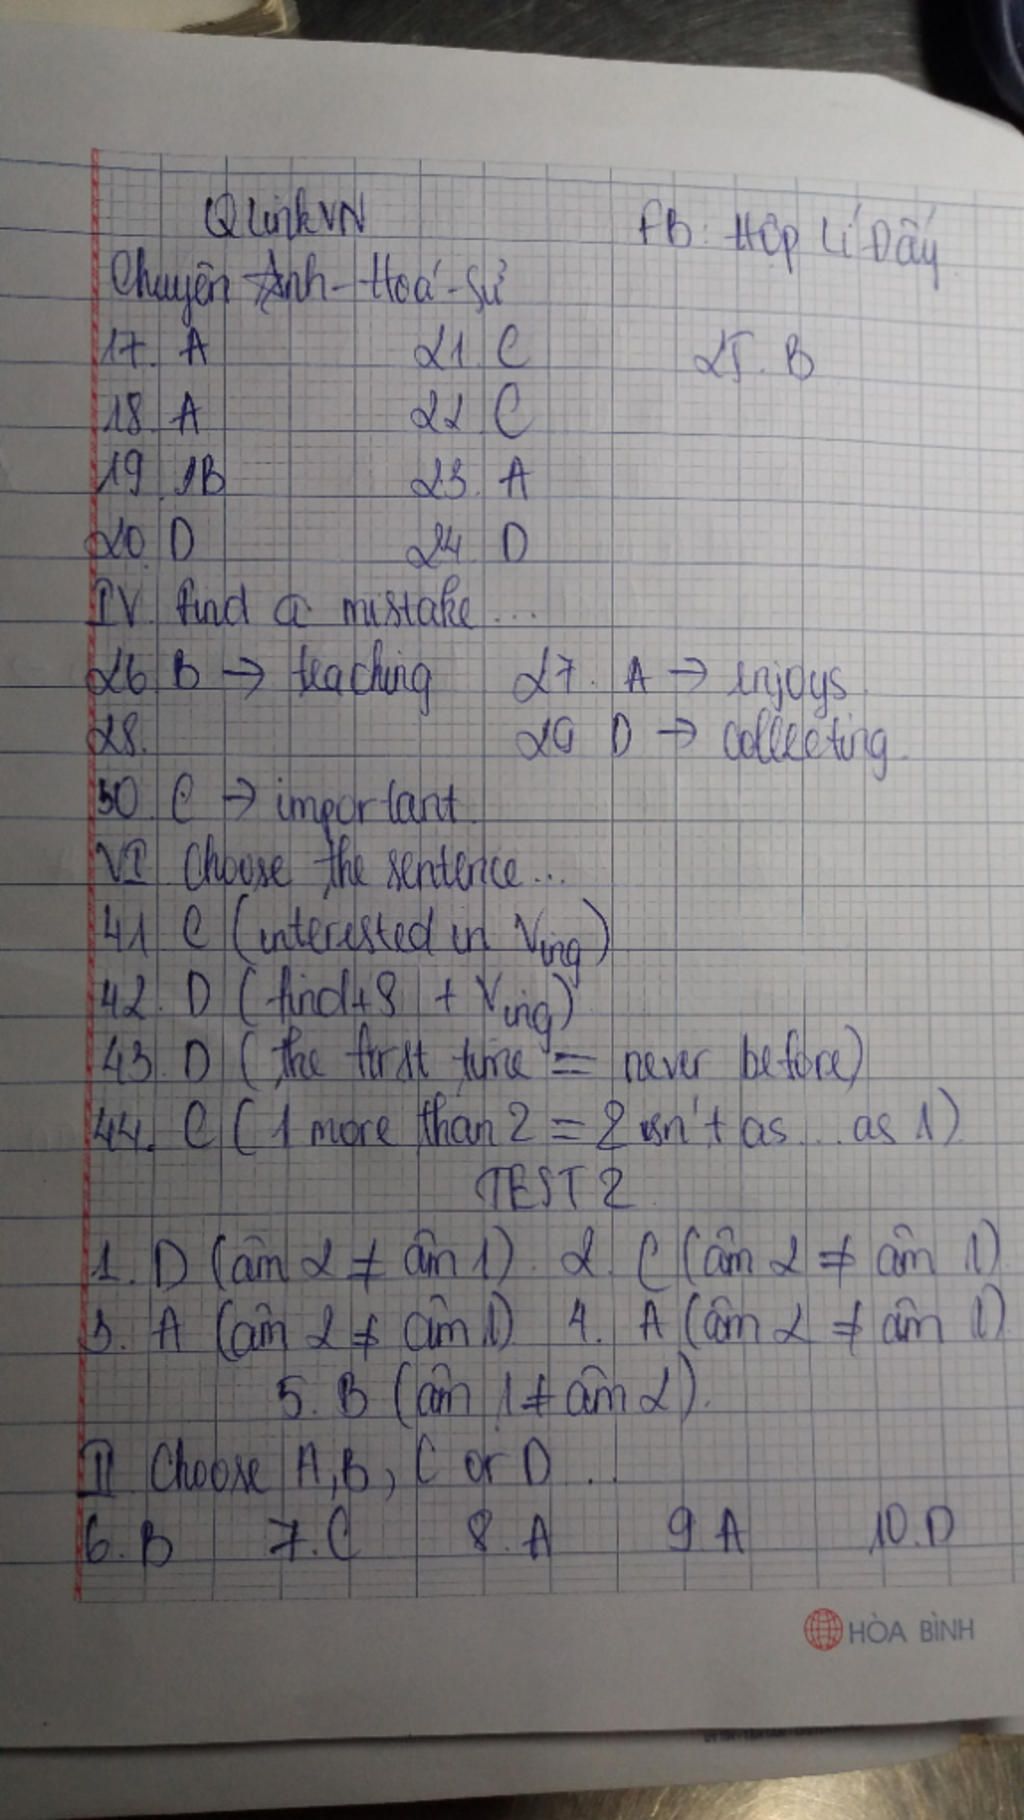 QlinkVN FB: Hợp Lí Đấy
Chuyên Anh - Hoá - Sử
17. A 21. C 25. B
18. A 22 C
19. B 23. A
20. D 24. D
IV. find a mistake...
26 B → teaching 27. A → enjoys.
28. 29 D → collecting.
30. C → important.
VI Choose the sentence...
41 C (interested in Ving)
42. D (find + S + Ving)
43. D (the first time = never before)
44. C (1 more than 2 = 2 isn't as... as 1)
TEST 2
1. D (âm 2 ≠ âm 1). 2. C (âm 2 ≠ âm 1)
3. A (âm 2 ≠ âm 1) 4. A (âm 2 ≠ âm 1)
5. B (âm 1 ≠ âm 2).
II Choose A, B, C or D...
6. B 7. C 8. A 9 A 10. D
HÒA BÌNH